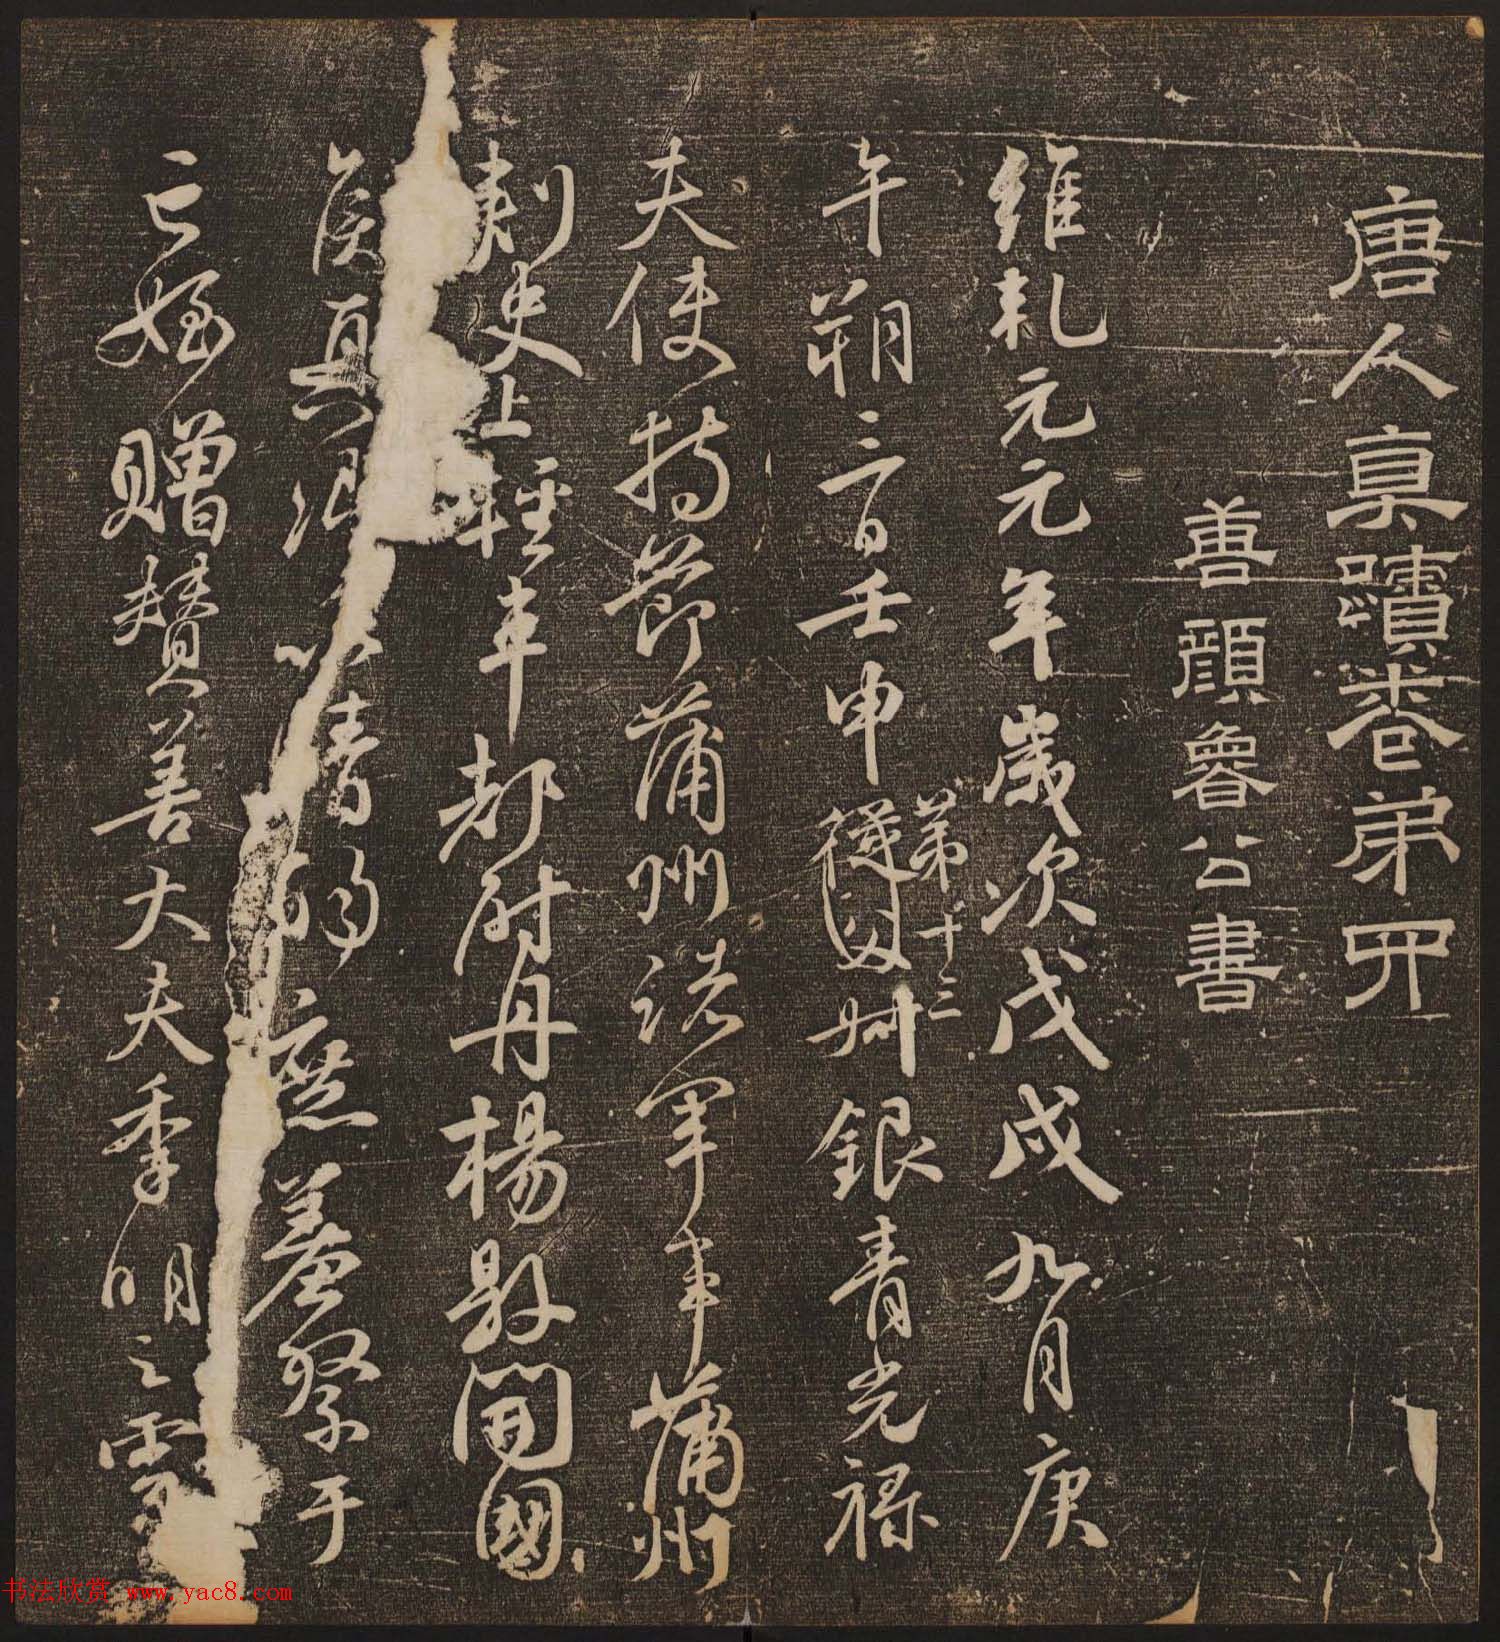 唐人真蹟卷弟四
善顔魯公書
維乹元元年歲次戊戌九月庚
午朔三日壬申第十三從父銀青光禄
夫使持節蒲州諸軍事蒲州
刺史上輕車都尉丹楊縣開國
侯真卿以清酌庶羞祭于
亡姪贈贊善大夫季明之靈
书法欣赏 www.yac8.com